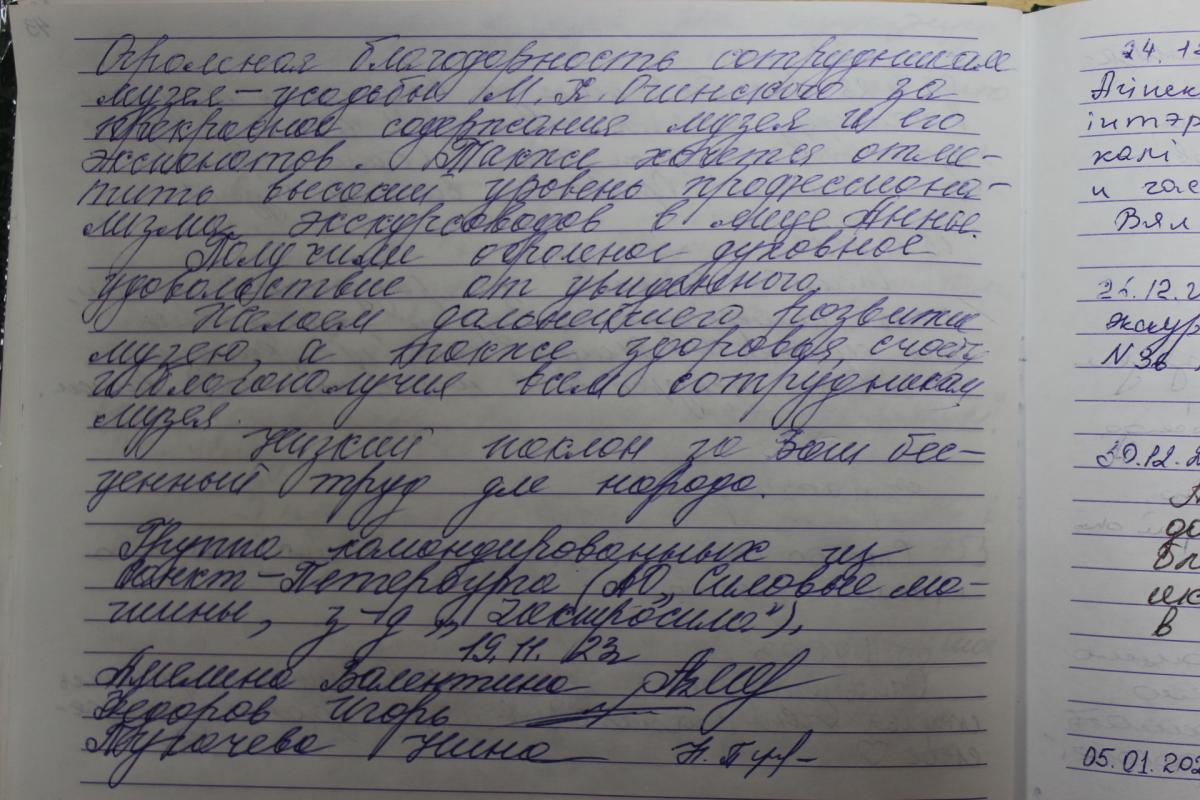 Огромная благодарность сотрудникам
музея-усадьбы М. К. Огинского за
прекрасное содержание музея и его
экспонатов. Также хочется отме-
тить высокий уровень профессиона-
лизма экскурсоводов в лице Анны.
Получили огромное духовное
удовольствие от увиденного.
Желаем дальнейшего развития
музею, а также здоровья, счастья
и благополучия всем сотрудникам
музея.
Низкий поклон за Ваш бес-
ценный труд для народа.
Группа командированных из
Санкт-Петербурга (АО „Силовые ма-
шины, з-д „Электросила"),
19.11.23
Амелина Валентина
Федоров Игорь
Пугачева Нина Н. Пуг
24.12
інтэр
калі
и час
Вял
экскур
N 36
30.12.2
в
05.01.202